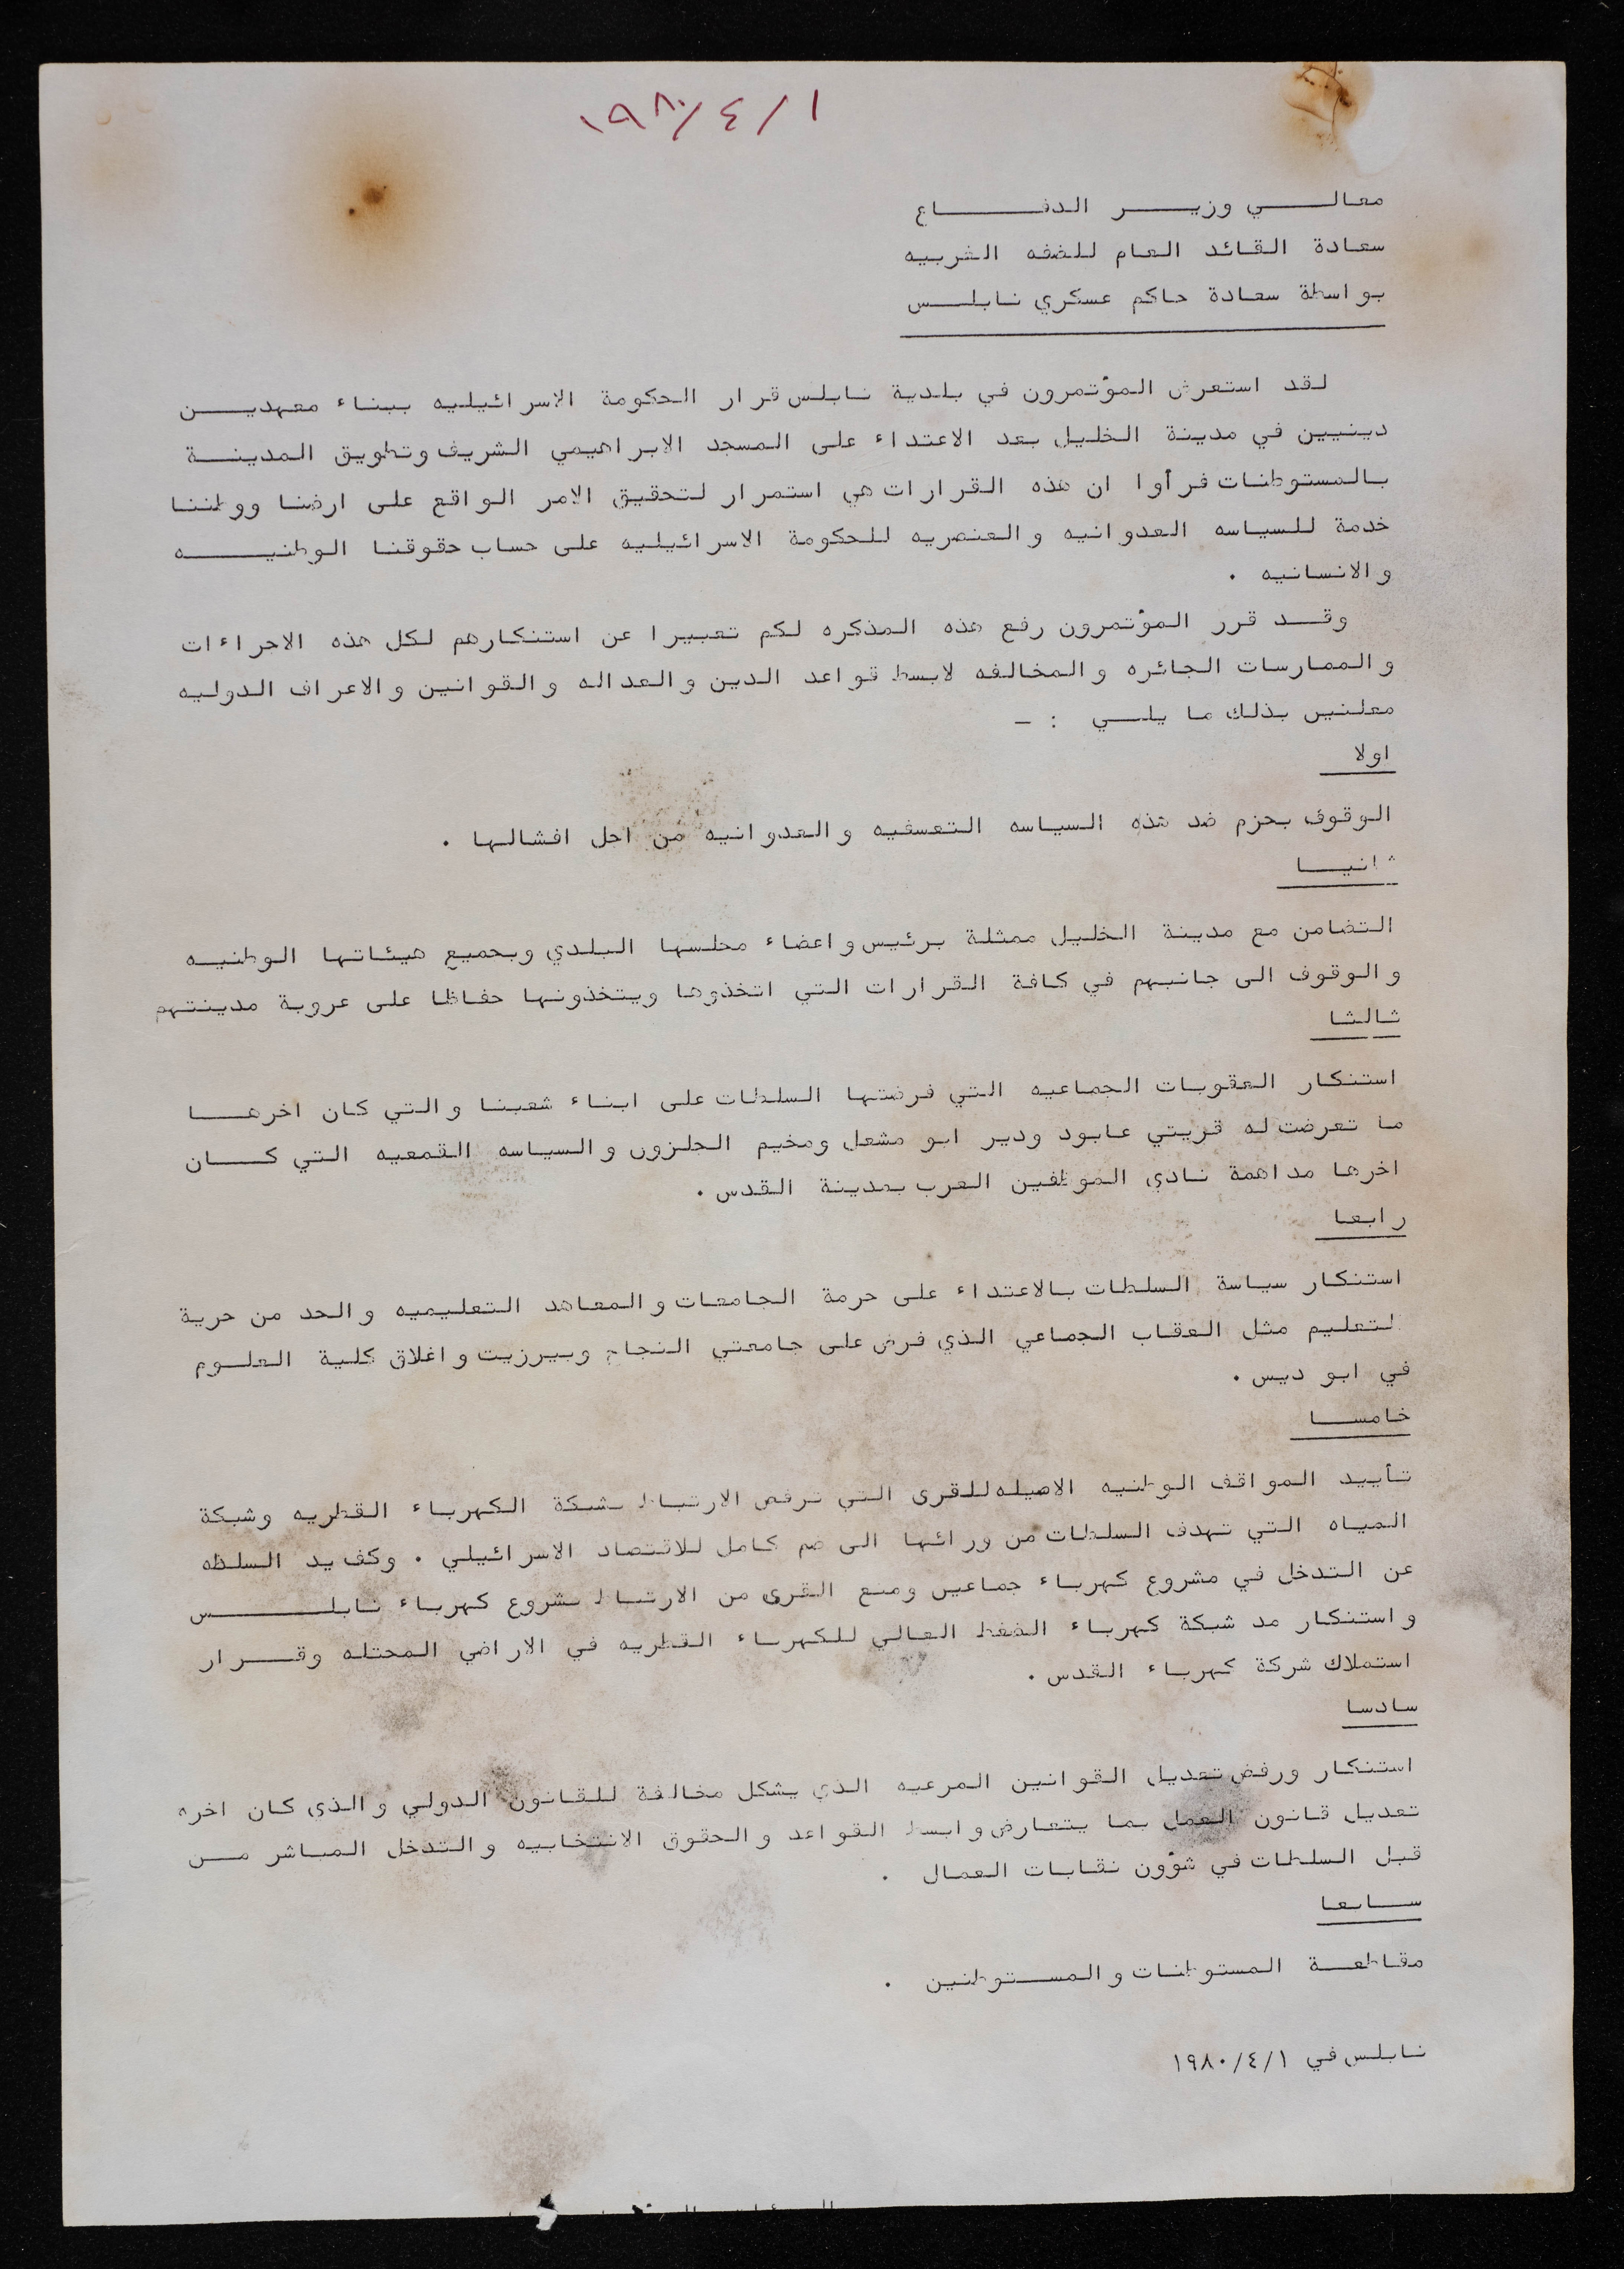 ١٩٨٠/٤/١
معالي وزير الدفاع
سعادة القائد العام للضفه الغربيه
بواسطة سعادة حاكم عسكري نابلس
لقد استعرض المؤتمرون في بلدية نابلس قرار الحكومة الاسرائيليه ببناء معهدين
دينيين في مدينة الخليل بعد الاعتداء على المسجد الابراهيمي الشريف وتطويق المدينة
بالمستوطنات فرأوا ان هذه القرارات هي استمرار لتحقيق الامر الواقع على ارضنا ووطننا
خدمة للسياسه العدوانيه والعنصريه للحكومة الاسرائيليه على حساب حقوقنا الوطنيه
والانسانيه .
وقد قرر المؤتمرون رفع هذه المذكره لكم تعبيرا عن استنكارهم لكل هذه الاجراءات
والممارسات الجائره والمخالفه لابسط قواعد الدين والعداله والقوانين والاعراف الدوليه
معلنين بذلك ما يلي : -
اولا
الوقوف بحزم ضد هذه السياسه التعسفيه والعدوانيه من اجل افشالها .
ثانيا
التضامن مع مدينة الخليل ممثلة برئيس واعضاء مجلسها البلدي وبجميع هيئاتها الوطنيه
والوقوف الى جانبهم في كافة القرارات التي اتخذوها ويتخذونها حفاظا على عروبة مدينتهم
ثالثا
استنكار العقوبات الجماعيه التي فرضتها السلطات على ابناء شعبنا والتي كان اخرها
ما تعرضت له قريتي عابود ودير ابو مشعل ومخيم الجلزون والسياسه القمعيه التي كان
اخرها مداهمة نادي الموظفين العرب بمدينة القدس .
رابعا
استنكار سياسة السلطات بالاعتداء على حرمة الجامعات والمعاهد التعليميه والحد من حرية
التعليم مثل العقاب الجماعي الذي فرض على جامعتي النجاح وبيرزيت واغلاق كلية العلوم
في ابو ديس .
خامسا
تأييد المواقف الوطنيه الاصيله للقرى التي ترفض الارتباط بشبكة الكهرباء القطريه وشبكة
المياه التي تهدف السلطات من ورائها الى ضم كامل للاقتصاد الاسرائيلي . وكف يد السلطه
عن التدخل في مشروع كهرباء جماعين ومنع القرى من الارتباط بمشروع كهرباء نابلس
واستنكار مد شبكة كهرباء الضغط العالي للكهرباء القطريه في الاراضي المحتله وقرار
استملاك شركة كهرباء القدس .
سادسا
استنكار ورفض تعديل القوانين المرعيه الذي يشكل مخالفة للقانون الدولي والذي كان اخره
تعديل قانون العمل بما يتعارض وابسط القواعد والحقوق الانتخابيه والتدخل المباشر من
قبل السلطات في شؤون نقابات العمال .
سابعا
مقاطعة المستوطنات والمستوطنين .
نابلس في ١٩٨٠/٤/١